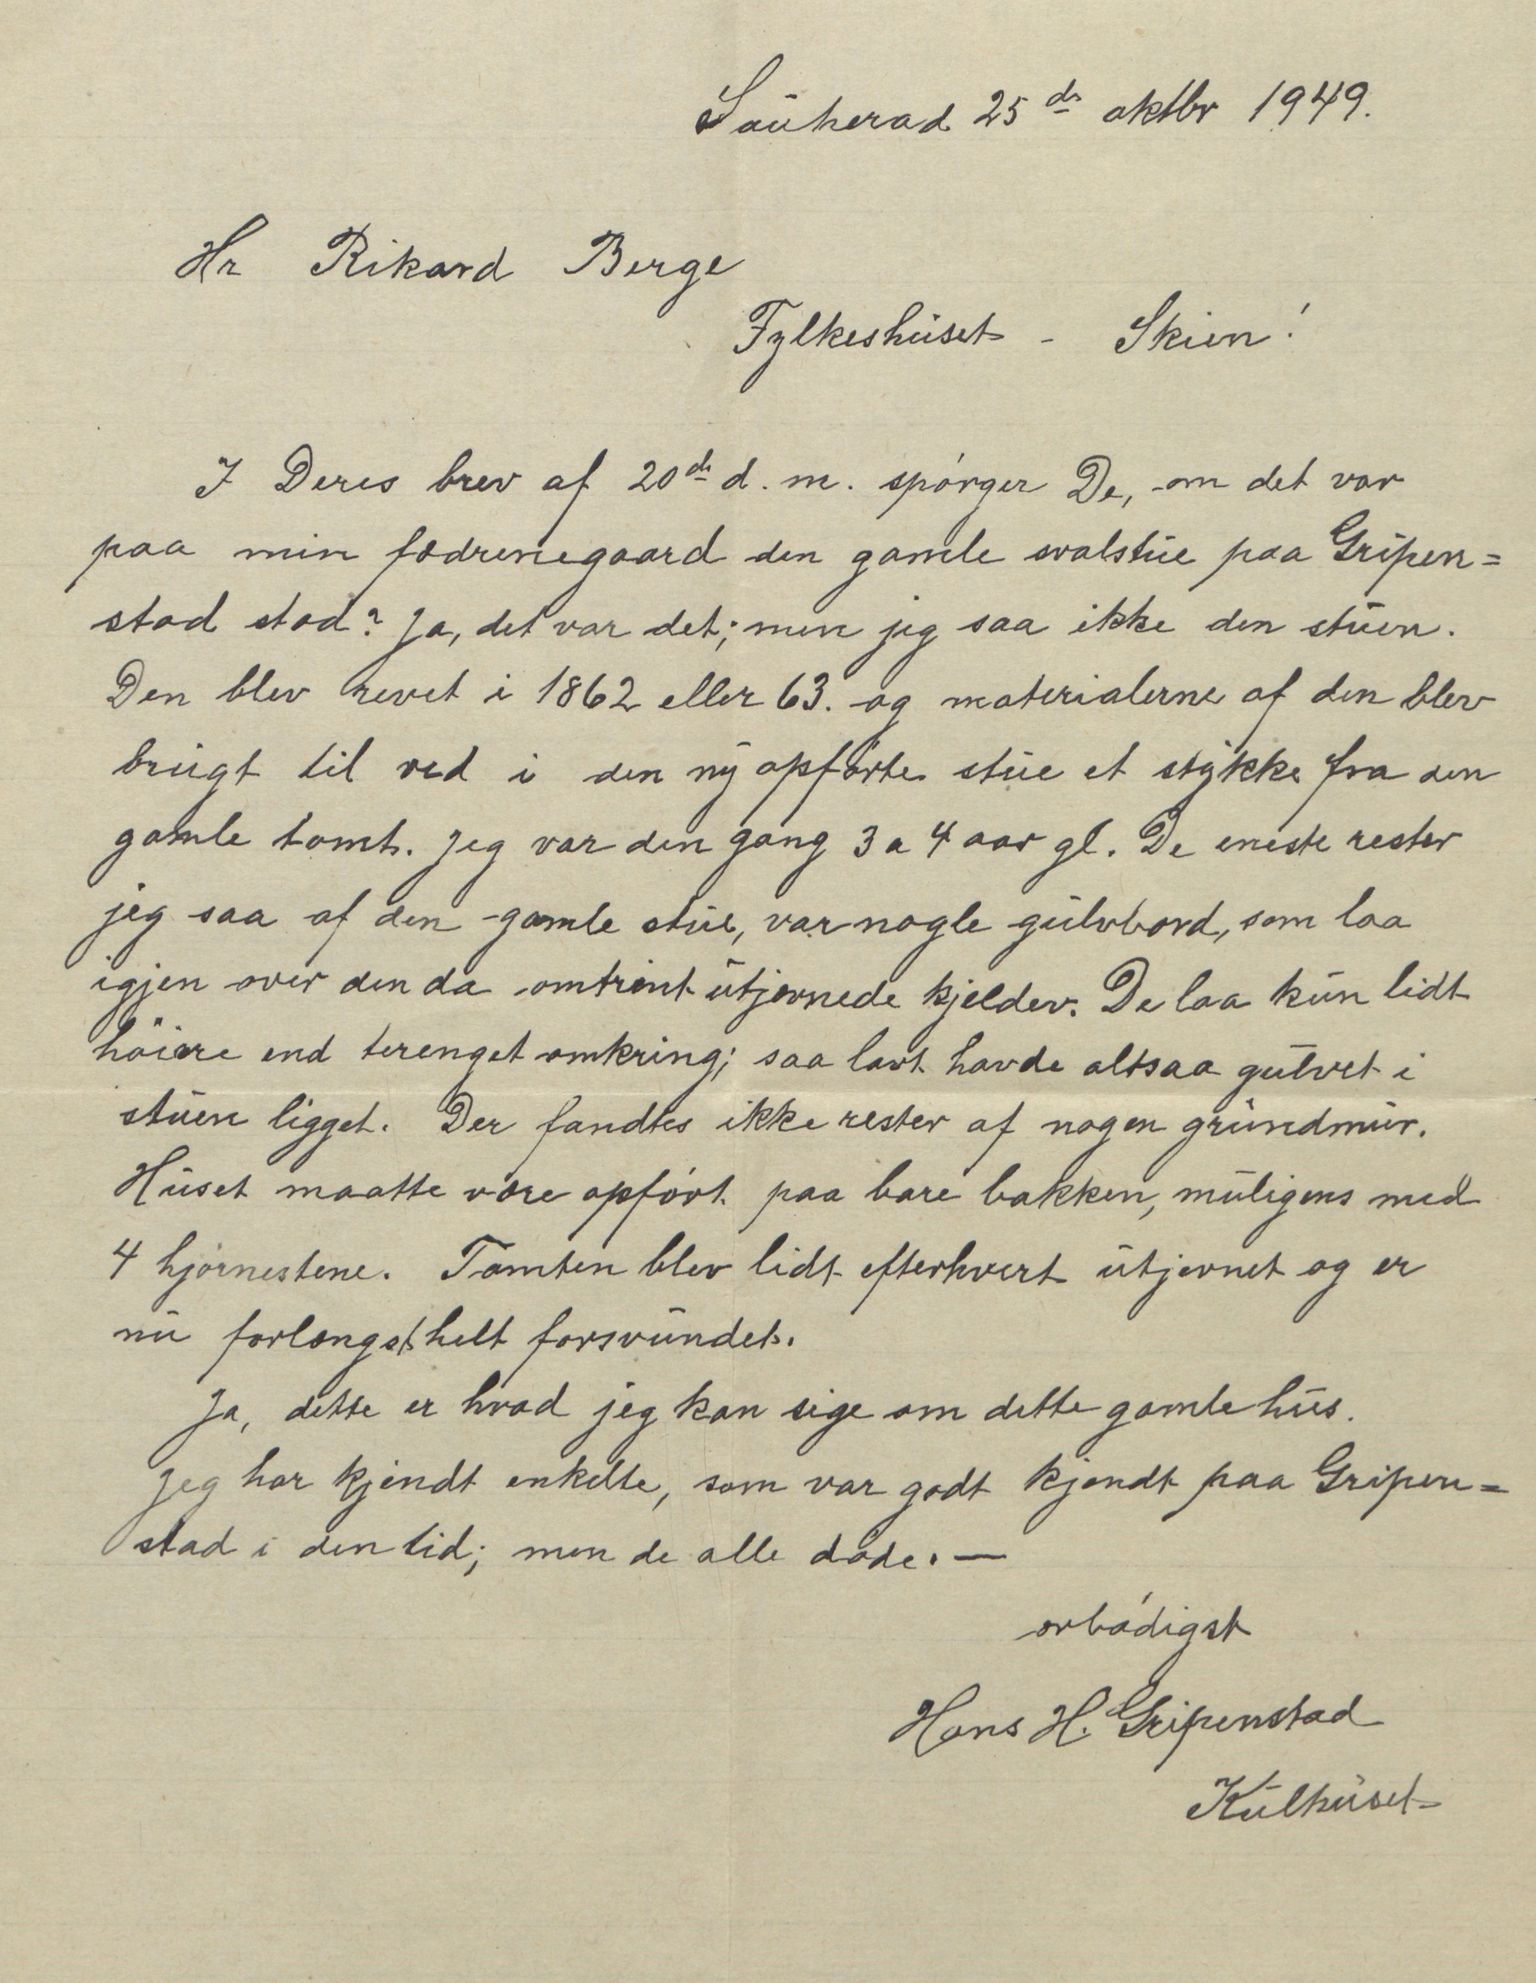 Sauherad 25 ds oktbr 1949.
Hr Rikard Berge
Fylkeshuset - Skien!
I Deres brev af 20 ds d. m. spørger De, om det var
paa min fædrenegaard den gamle svalstue paa Gripen=
stad stod? Ja, det var det; men jeg saa ikke den stuen.
Den blev revet i 1862 eller 63. og materialerne af den blev
brugt til ved i den ny opførte stue et stykke fra den
gamle tomt. Jeg var den gang 3 a 4 aar gl. De eneste rester
jeg saa af den gamle stue, var nogle gulvbord, som laa
igjen over den da omtrent utjevnede kjelder. De laa kun lidt
høiere end terenget omkring; saa lavt havde altsaa gulvet i
stuen ligget. Der fandtes ikke rester af nogen grundmur.
Huset maatte være opført paa bare bakken, muligens med
4 hjørnestene. Tomten blev lidt efterhvert utjevnet og er
nu forlængst helt forsvundet.
Ja, dette er hvad jeg kan sige om dette gamle hus.
Jeg har kjendt enkelte, som var godt kjendt paa Gripen=
stad i den tid; men de alle døde. —
ærbødigst
Hans H. Gripenstad
Kulhuset